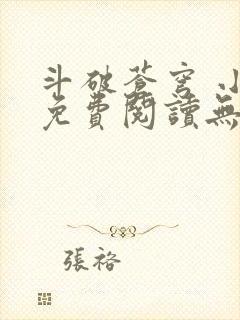 斗破蒼穹 小
免費閱讀無
張裕